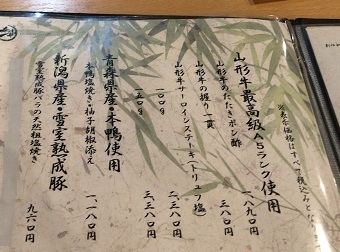 ※表示価格はすべて税込みとな
山形牛最高級A5ランク使用
山形牛のたたきポン酢 一、八九〇円
山形牛の握り一貫 三八〇円
山形牛サーロインステーキ(トリュフ塩)
一〇〇g 二、三八〇円
一五〇g 三、三八〇円
青森県産・本鴨使用
本鴨塩焼き・柚子胡椒添え 一、一八〇円
新潟県産・雪室熟成豚
雪室熟成豚バラの天然粗塩焼き 九六〇円